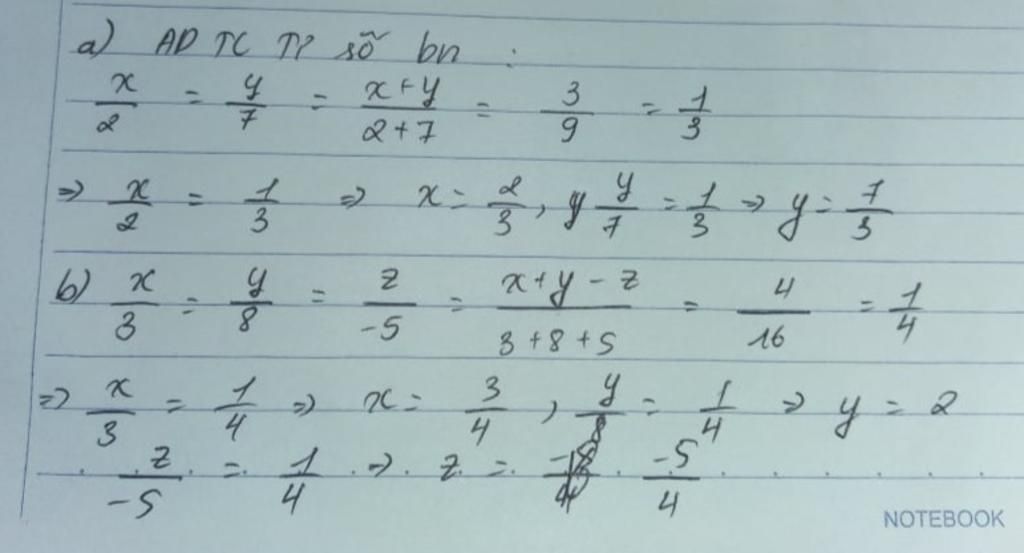 a) AD TC TP số bn :
x/2 = y/7 = x+y/2+7 = 3/9 = 1/3
=> x/2 = 1/3 => x = 2/3, y/7 = 1/3 => y = 7/3
b) x/3 = y/8 = z/-5 = x+y-z/3+8+5 = 4/16 = 1/4
=> x/3 = 1/4 => x = 3/4, y/8 = 1/4 => y = 2
z/-5 = 1/4 => z = -5/4
NOTEBOOK